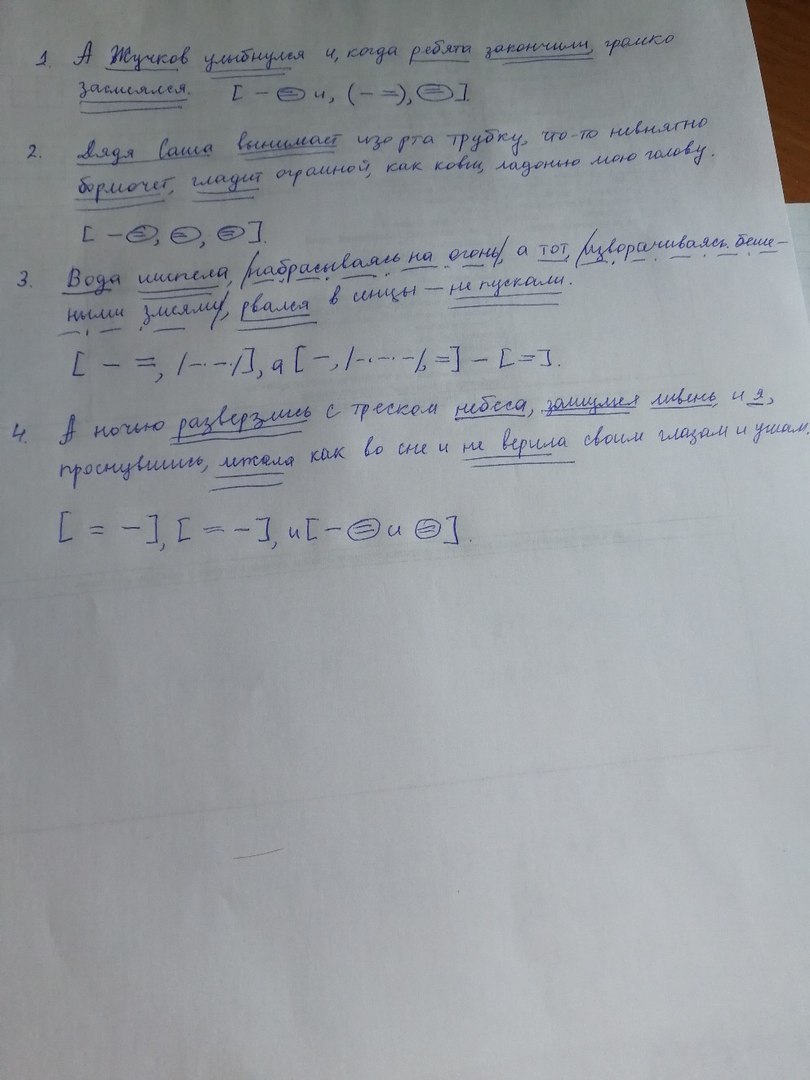 1. А Жучков улыбнулся и, когда ребята закончили, громко
засмеялся. [ - = и, ( - = ), = ].
2. Дядя Саша вынимает изо рта трубку, что-то невнятно
бормочет, гладит огромной, как ковш, ладонью мою голову.
[ - =, =, = ].
3. Вода шипела, /набрасываясь на огонь/, а тот, /изворачиваясь беше-
ными змеями/, рвался в сенцы — не пускали.
[ - =, /-·-·-/], а [ -, /-·-·-/, = ] - [ = ].
4. А ночью разверзлись с треском небеса, зашумел ливень, и я,
проснувшись, лежала как во сне и не верила своим глазам и ушам.
[ = - ], [ = - ], и [ - = и = ].